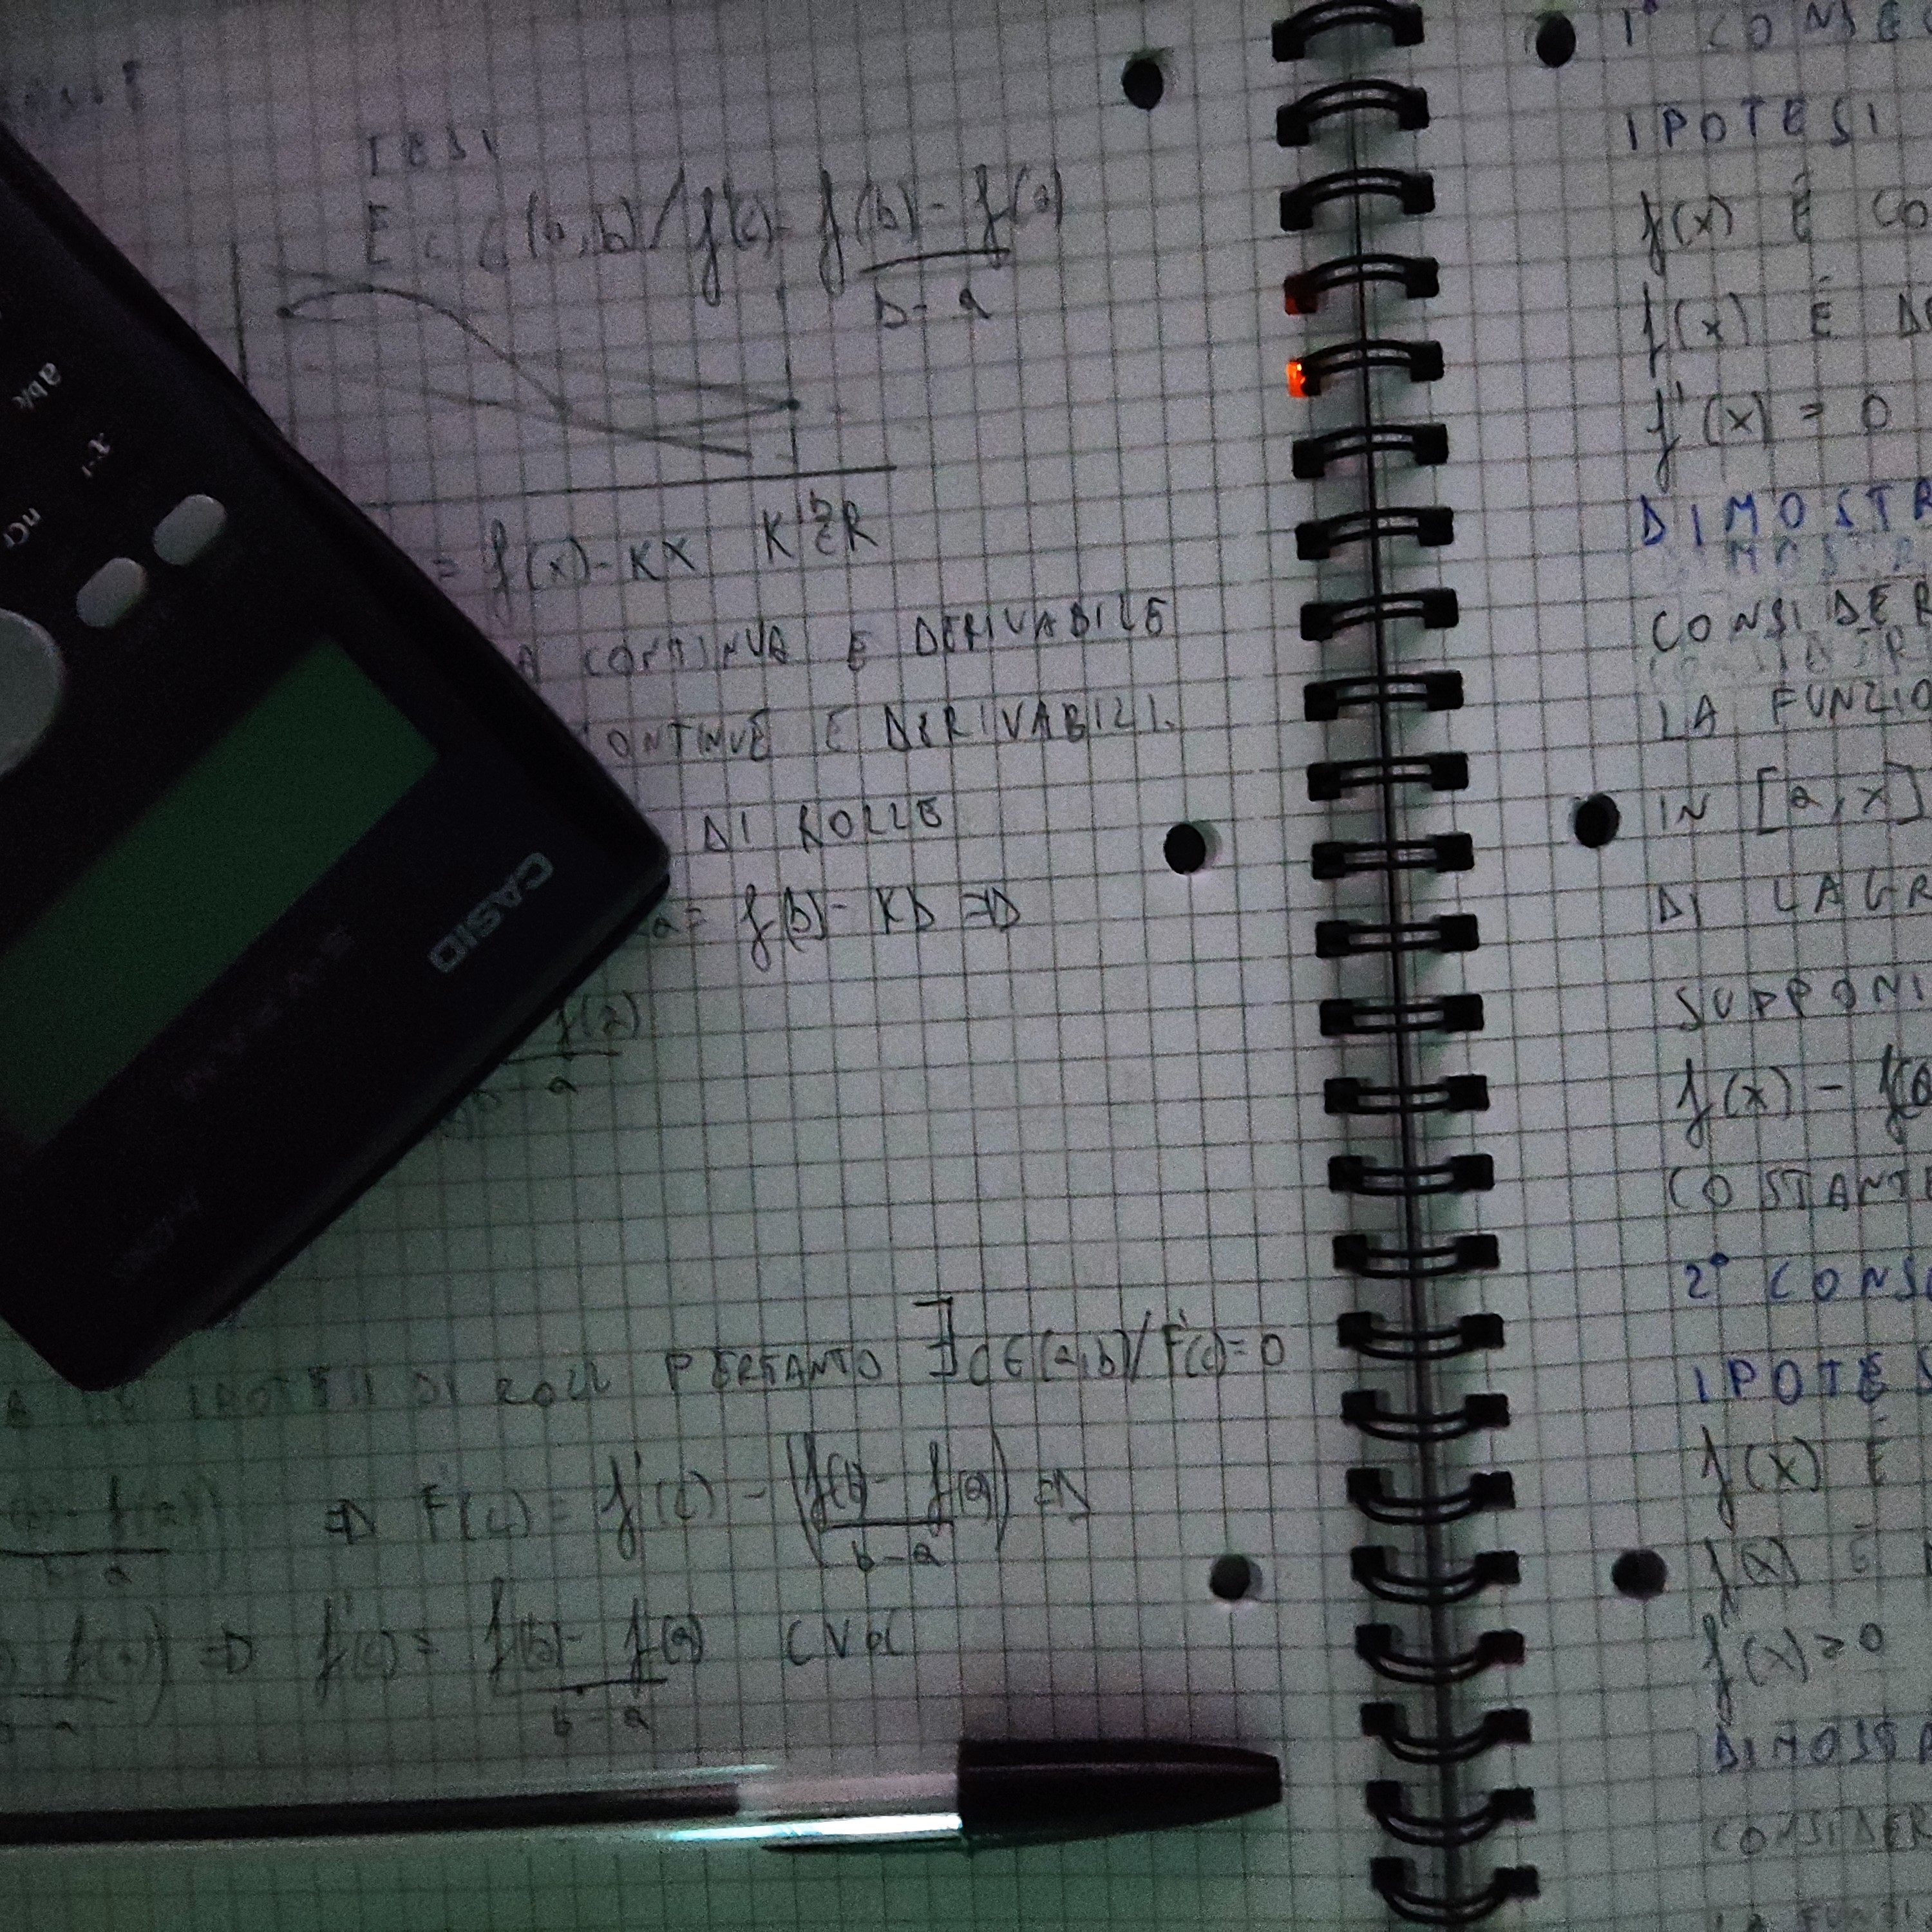 TESI
E c ∈ (a,b) / f'(c) = f(b) - f(a)
b - a
= f(x) - KX K ∈ R
b
A CONTINUA E DERIVABILE
CONTINUE E DERIVABILI.
DI ROLLE
a = f(b) - Kb =D
f(a)
a
IPOTESI DI ROLL PERTANTO ∃ c ∈ (a,b) / F'(c) = 0
f(a)
b - a
=D F'(c) = f'(c) - (f(b) - f(a)) =D
b - a
f(a)) =D f'(c) = f(b) - f(a) CVD
b - a
CASIO
ab/c
x-1
nCr
1° CONSE
IPOTESI
f(x) È CO
f(x) È D
f'(x) = 0
DIMOSTR
CONSIDER
LA FUNZIO
IN [a,x]
DI LAGR
SUPPONI
f(x) - f(a
COSTANT
2° CONS
IPOTES
f(x) È
f(x) È
f'(x) > 0
DIMOSTR
CONSIDER